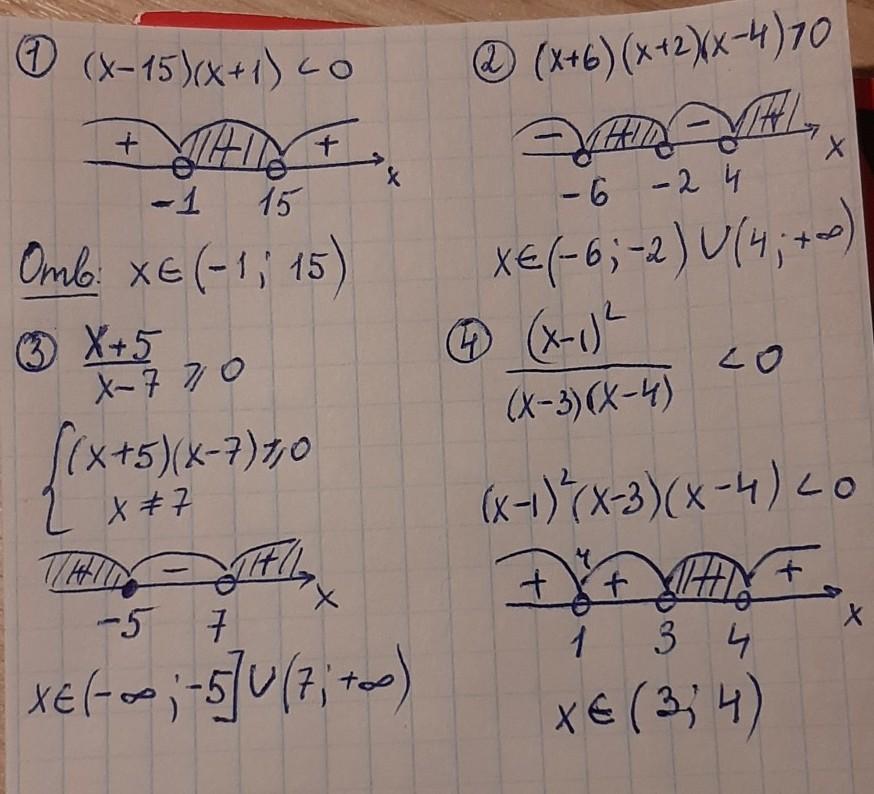 ① (x-15)(x+1) < 0
+ + +
-1 15 x
Отв: x∈(-1; 15)
② (x+6)(x+2)(x-4)>0
- + - +
-6 -2 4 x
x∈(-6;-2)∪(4;+∞)
③ x+5
x-7 ⩾ 0
(x+5)(x-7)⩾0
x≠7
+ - +
-5 7 x
x∈(-∞;-5]∪(7;+∞)
④ (x-1)²
(x-3)(x-4) < 0
(x-1)²(x-3)(x-4) < 0
+ + + +
1 3 4 x
x∈(3; 4)